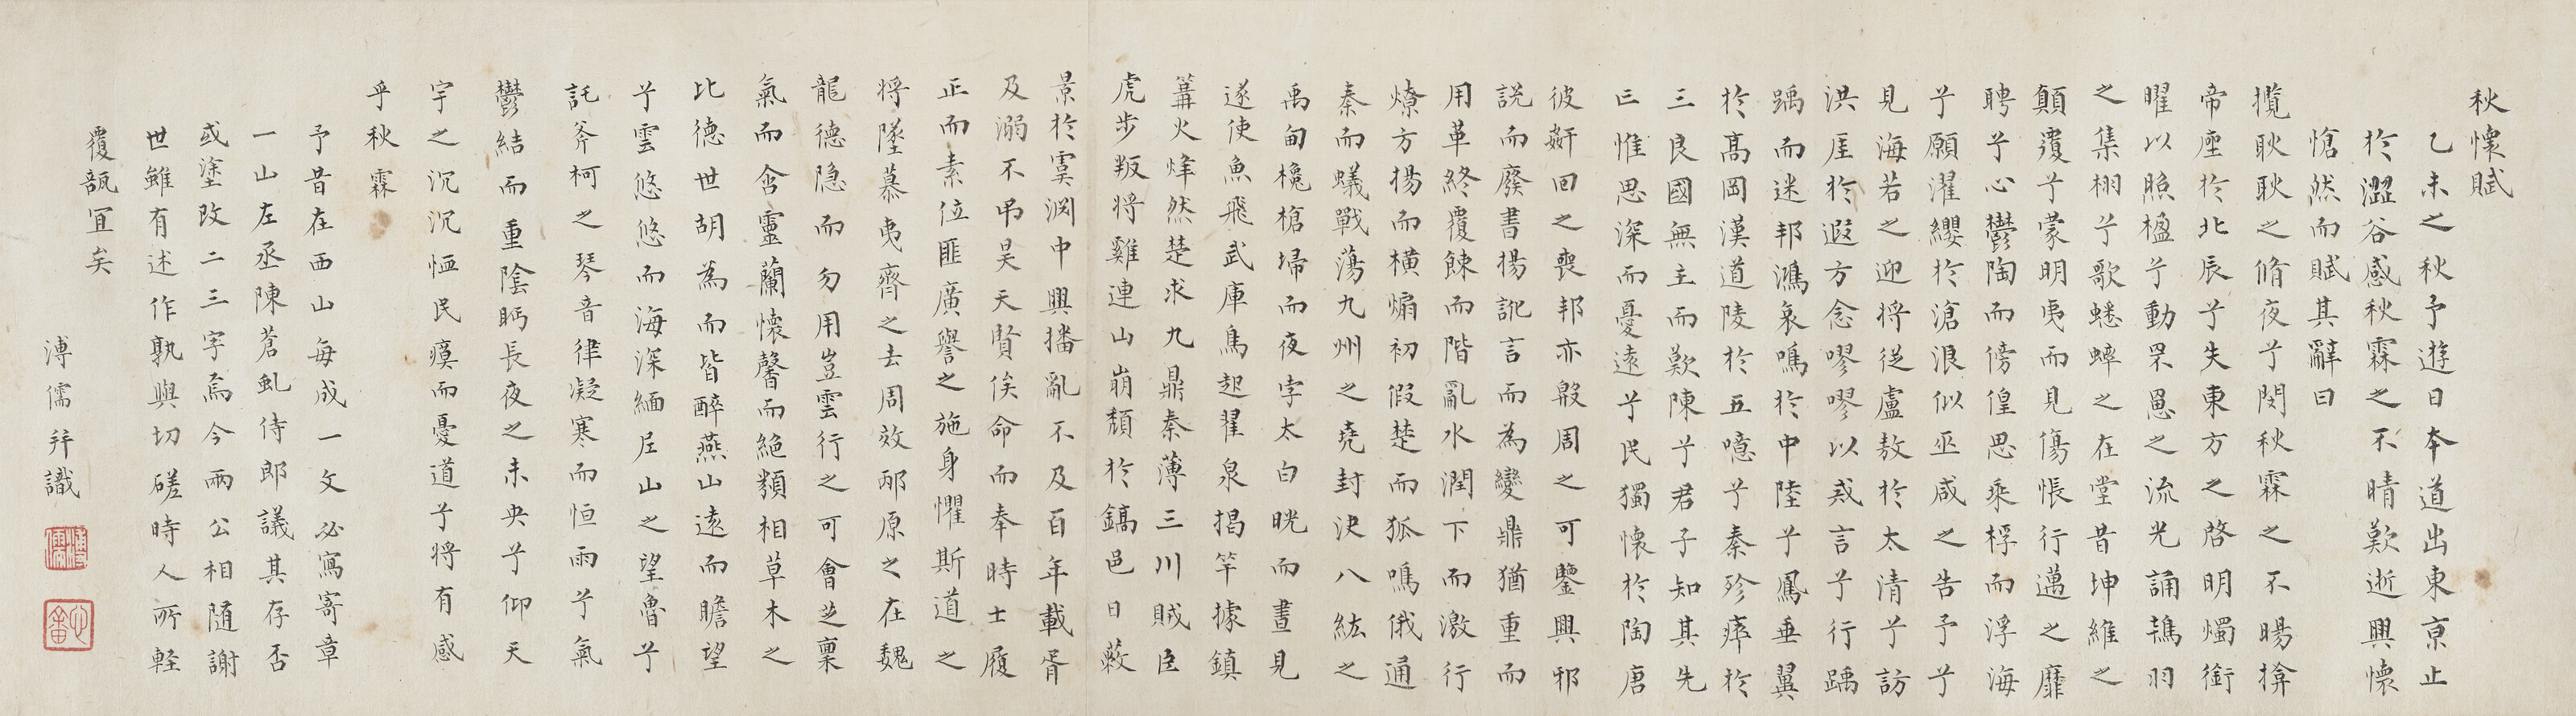 秋懷賦
乙未之秋予遊日本道出東京止
於澀谷感秋霖之不晴歎逝興懷
愴然而賦其辭曰
攬耿耿之脩夜兮閔秋霖之不暘揜
帝座於北辰兮失東方之啓明燭銜
曜以照楹兮動罘罳之流光誦鴇羽
之集栩兮歌蟋蟀之在堂昔坤維之
顛覆兮蒙明夷而見傷悵行邁之靡
聘兮心鬱陶而傍偟思乘桴而浮海
兮願濯纓於滄浪似巫咸之告予兮
見海若之迎將從盧敖於太清兮訪
洪厓於遐方念嘐嘐以忞言兮行踽
踽而迷邦鴻哀鳴於中陸兮鳳垂翼
於高岡漢道陵於五噫兮秦殄瘁於
三良國無主而歎陳兮君子知其先
亾惟思深而憂遠兮民獨懷於陶唐
彼姧回之喪邦亦殷周之可鑒興邪
說而廢書揚訛言而為變鼎猶重而
用革終覆餗而階亂水潤下而激行
燎方揚而橫煽初假楚而狐鳴俄通
秦而蟻戰蕩九州之堯封決八紘之
禹甸欃槍埽而夜孛太白晄而晝見
遂使魚飛武庫鳥起翟泉揭竿據鎮
篝火烽然楚求九鼎秦薄三川賊臣
虎步叛將雞連山崩頽於鎬邑日薮
景於虞淵中興播亂不及百年載胥
及溺不弔昊天賢俟命而奉時士履
正而素位匪廣譽之施身懼斯道之
將墜慕夷齊之去周效邴原之在魏
龍德隐而勿用豈雲行之可會芝稟
氣而含靈蘭懷馨而絕類相草木之
比德世胡為而皆醉燕山遠而瞻望
兮雲悠悠而海深緬尼山之望魯兮
託斧柯之琴音律凝寒而恒雨兮氣
鬱結而重陰眄長夜之未央兮仰天
宇之沉沉恤民瘼而憂道兮將有感
乎秋霖
予昔在西山每成一文必寫寄章
一山左丞陳蒼虬侍郎議其存否
或塗改二三字焉今兩公相隨謝
世雖有述作孰與切磋時人所輕
覆瓿宜矣
溥儒拜識
溥儒
心畬